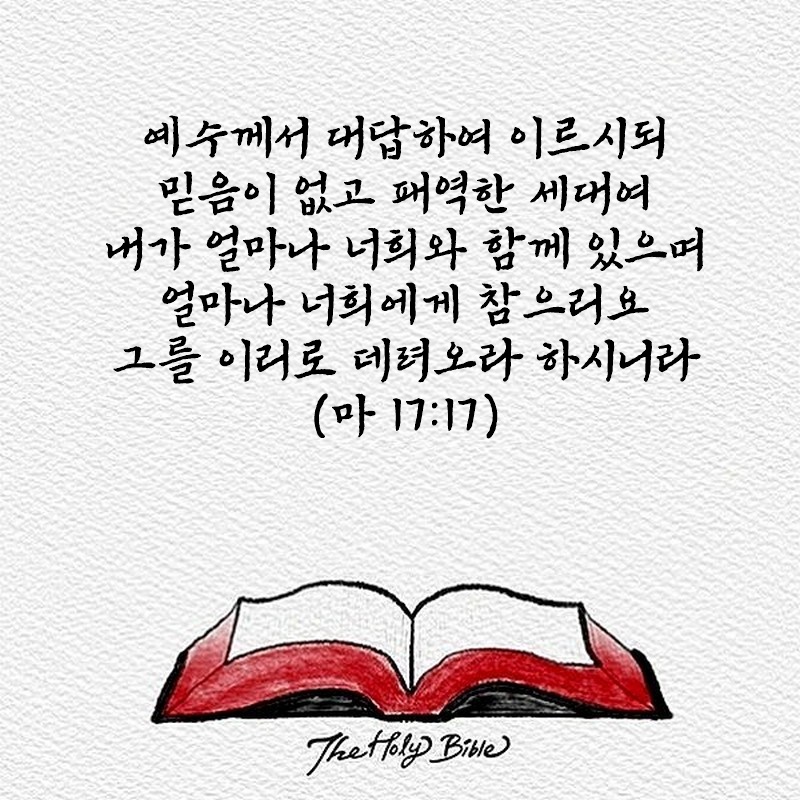 예수께서 대답하여 이르시되
믿음이 없고 패역한 세대여
내가 얼마나 너희와 함께 있으며
얼마나 너희에게 참으리요
그를 이리로 데려오라 하시니라
(마 17:17)
The Holy Bible